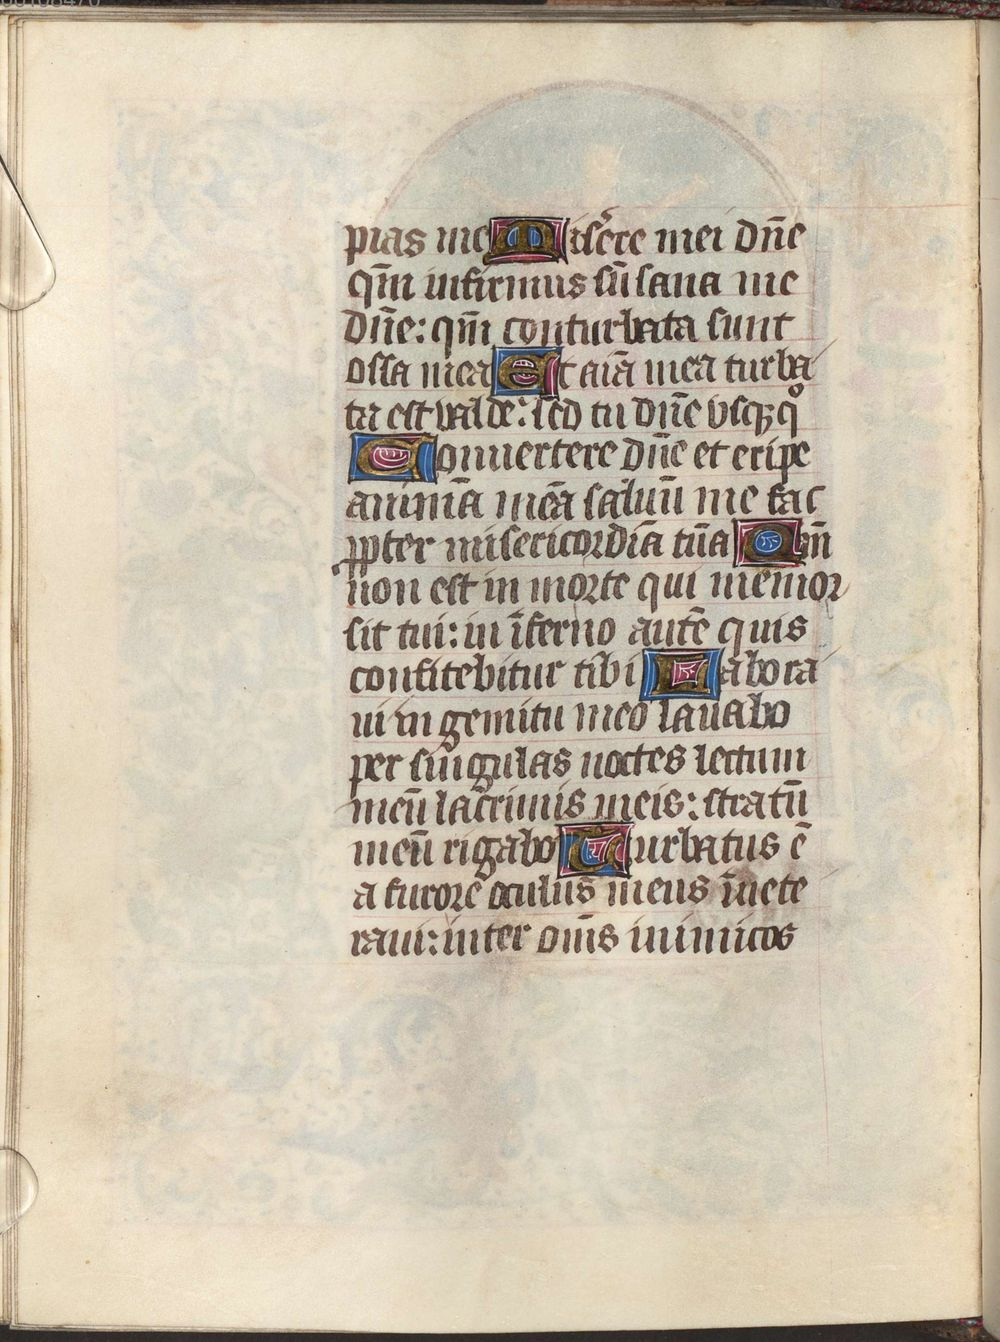 pias me Misere mei dn̄e
qm̄ infirmus sū sana me
dn̄e: qm̄ conturbata sunt
ossa mea Et aīa mea turba
ta est valde: sed tu dn̄e vsqꝫ qͦ
Conuertere dn̄e et eripe
animā meā saluū me fac
ꝓpter misericordiā tuā Qm̄
non est in morte qui memor
sit tui: in īferno autē quis
confitebitur tibi Labora
ui in gemitu meo lauabo
per singulas noctes lectum
meū lacrimis meis: stratū
meū rigabo Turbatus ē
a furore oculus meus īuete
raui: inter om̄s inimicos